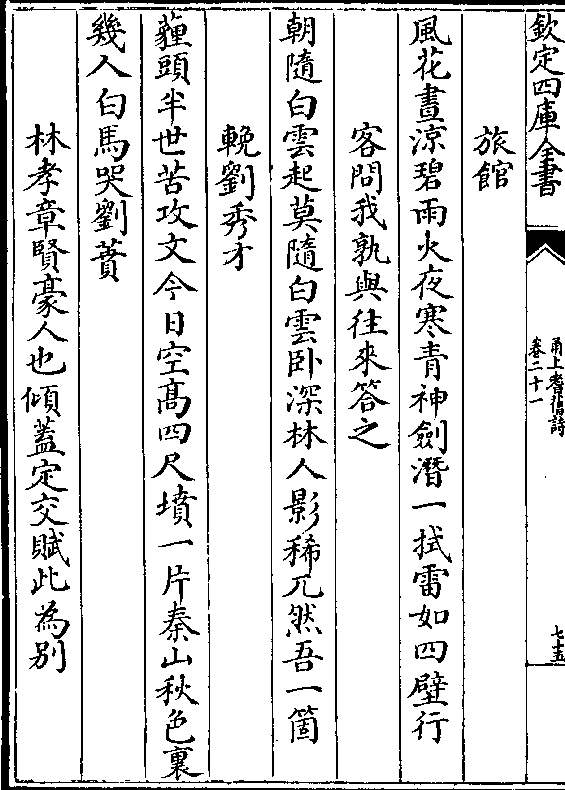 欽定四庫全書
甬上耆舊詩
卷二十一
七十五
旅館
風花晝涼碧雨火夜寒青神劍潛一拭雷如四壁行
客問我孰與往來答之
朝隨白雲起莫隨白雲卧深林人影稀兀然吾一箇
輓劉秀才
薤頭半世苦攻文今日空高四尺墳一片秦山秋色裏
幾人白馬哭劉蕡
林孝章賢豪人也傾蓋定交賦此為別